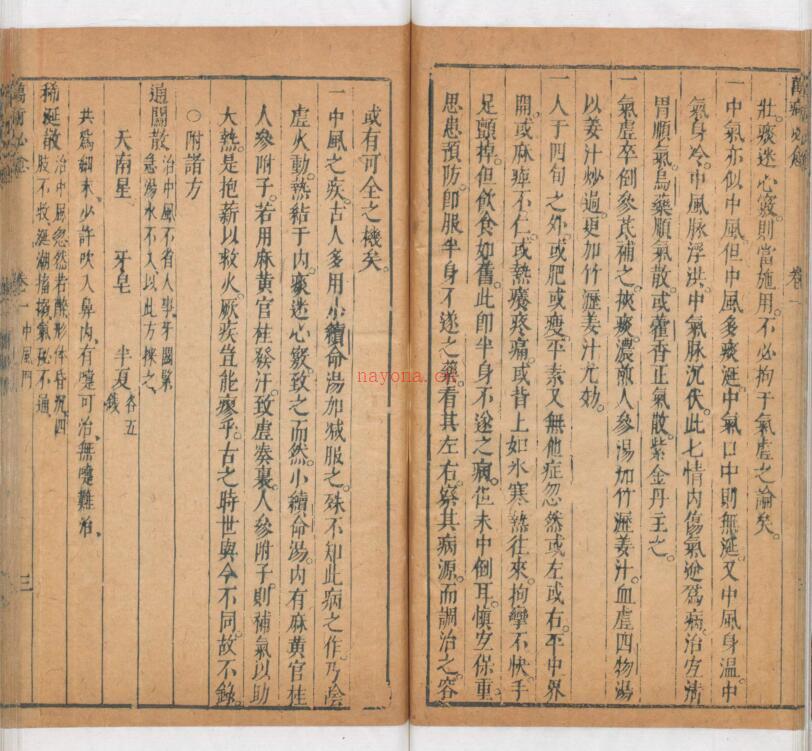 壯。痰迷心竅。則當施用。不必拘于氣虛之論矣。
一中氣亦似中風。但中風多痰涎。中氣口中則無涎。又中風身溫。中
氣身冷。中風脉浮洪。中氣脉沉伏。此七情內傷。氣逆爲病。治宜淸
胃順氣。烏藥順氣散。或藿香正氣散。紫金丹主之。
一氣虛卒倒。參芪補之。挾痰。濃煎人參湯加竹瀝姜汁。血虛四物湯
以姜汁炒過。更加竹瀝姜汁尤効。
一人于四旬之外。或肥或瘦。平素又無他症。忽然或左或右。平中界
開。或麻痺不仁。或熱癢疼痛。或背上如氷寒熱往來。拘攣不快。手
足顫掉。但飮食如舊。此卽半身不遂之病。但未中倒耳。愼宜保重
思患預防。卽服半身不遂之藥。看其左右。察其病源。而調治之。容
或有可全之機矣。
一中風之疾。古人多用小續命湯加减服之。殊不知此病之作。乃陰
虛火動。熱結于內。痰迷心竅。致之而然。小續命湯。內有麻黃官桂
人參附子。若用麻黃官桂發汗。致虛奏裏。人參附子。則補氣以助
大熱。是抱薪以救火。厥疾豈能瘳乎。古之時世與今不同。故不錄。
○附諸方
通關散 治中風不省人事。牙關緊急。湯水不入。以此方探之、
天南星 牙皂 半夏各五錢
共爲細末、少許吹入鼻內、有嚏可治、無嚏難治、
稀涎散 治中風忽然若醉形体昏 四肢不收涎潮 氣 不通
卷一 中風門 三
nayona.cn